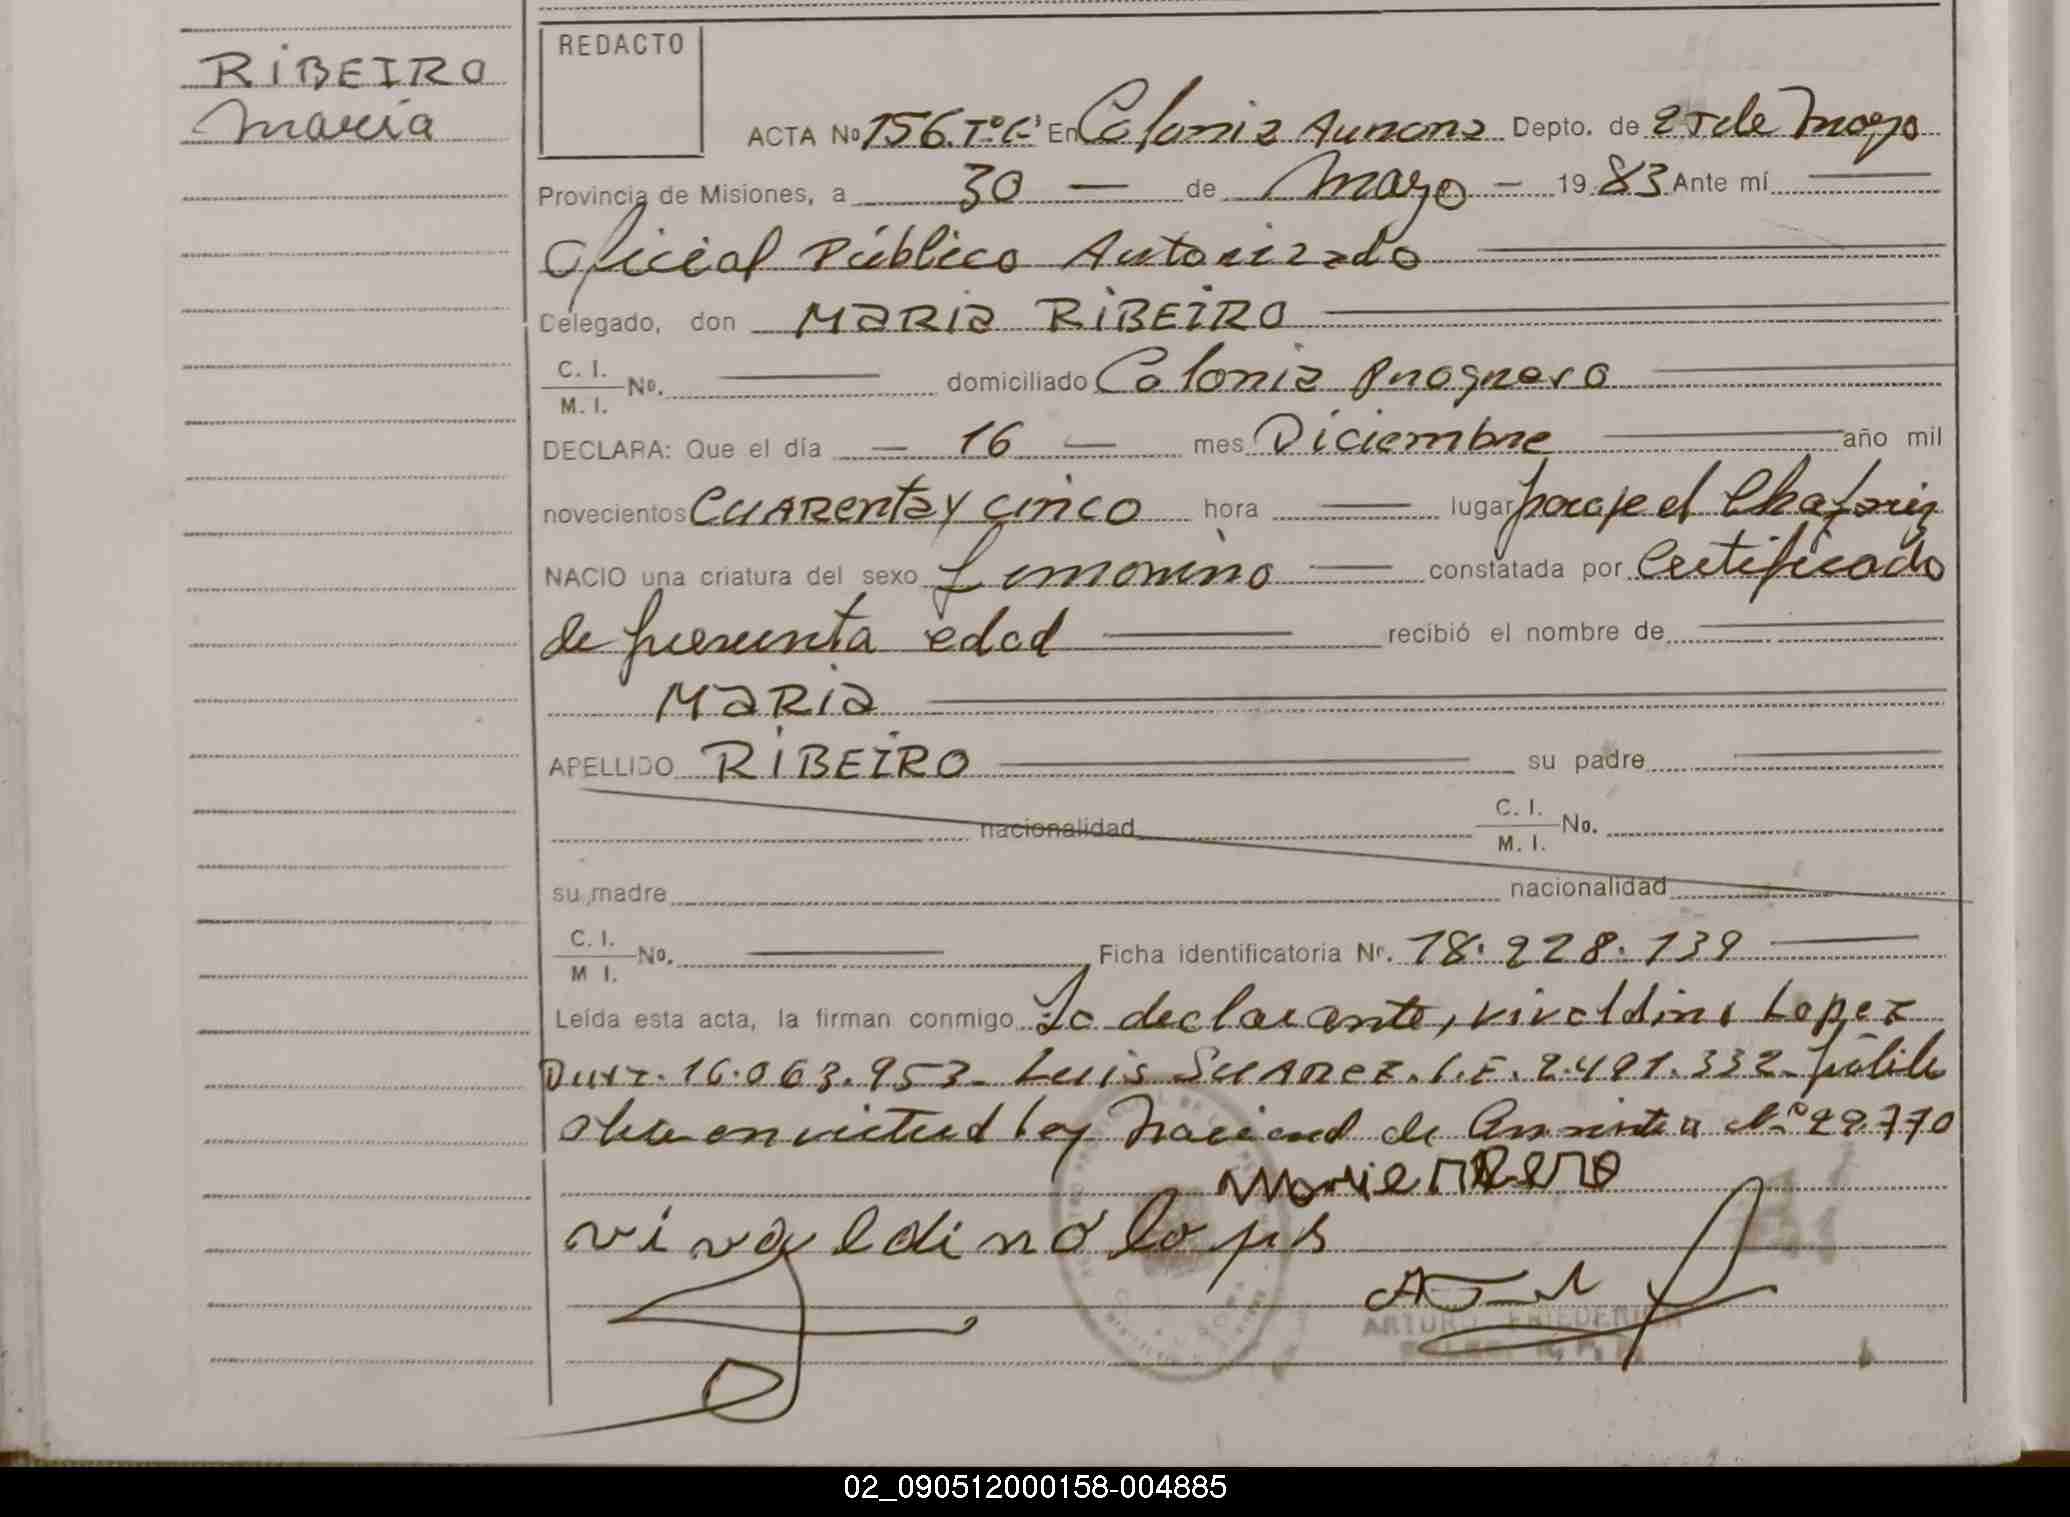 RIBEIRO
María
REDACTO
ACTA Nº 156. Tº 6º En Colonia Aurora Depto. de 25 de Mayo
Provincia de Misiones, a 30 — de Mayo — 1983 Ante mí
Oficial Público Autorizado
Delegado, don MARIA RIBEIRO
C. I.
M. I. No. domiciliado Colonia
DECLARA: Que el día — 16 — mes Diciembre año mil
novecientos CUARENTA y CINCO hora lugar paraje el Chafariz
NACIO una criatura del sexo femenino constatada por Certificado
de presunta edad recibió el nombre de
MARIA
APELLIDO RIBEIRO su padre
nacionalidad C. I.
M. I. No.
su madre nacionalidad
C. I.
M I. No. Ficha identificatoria Nr. 18.228.139
Leída esta acta, la firman conmigo La declarante, Vivaldino Lopez
16.063.953. Luis SUAREZ. L.E. 2.491.332.
en virtud ley Nacional de Amnistia Nº 22.770
vivaldino lopes
ARTURO FRIEDERICH
02_090512000158-004885